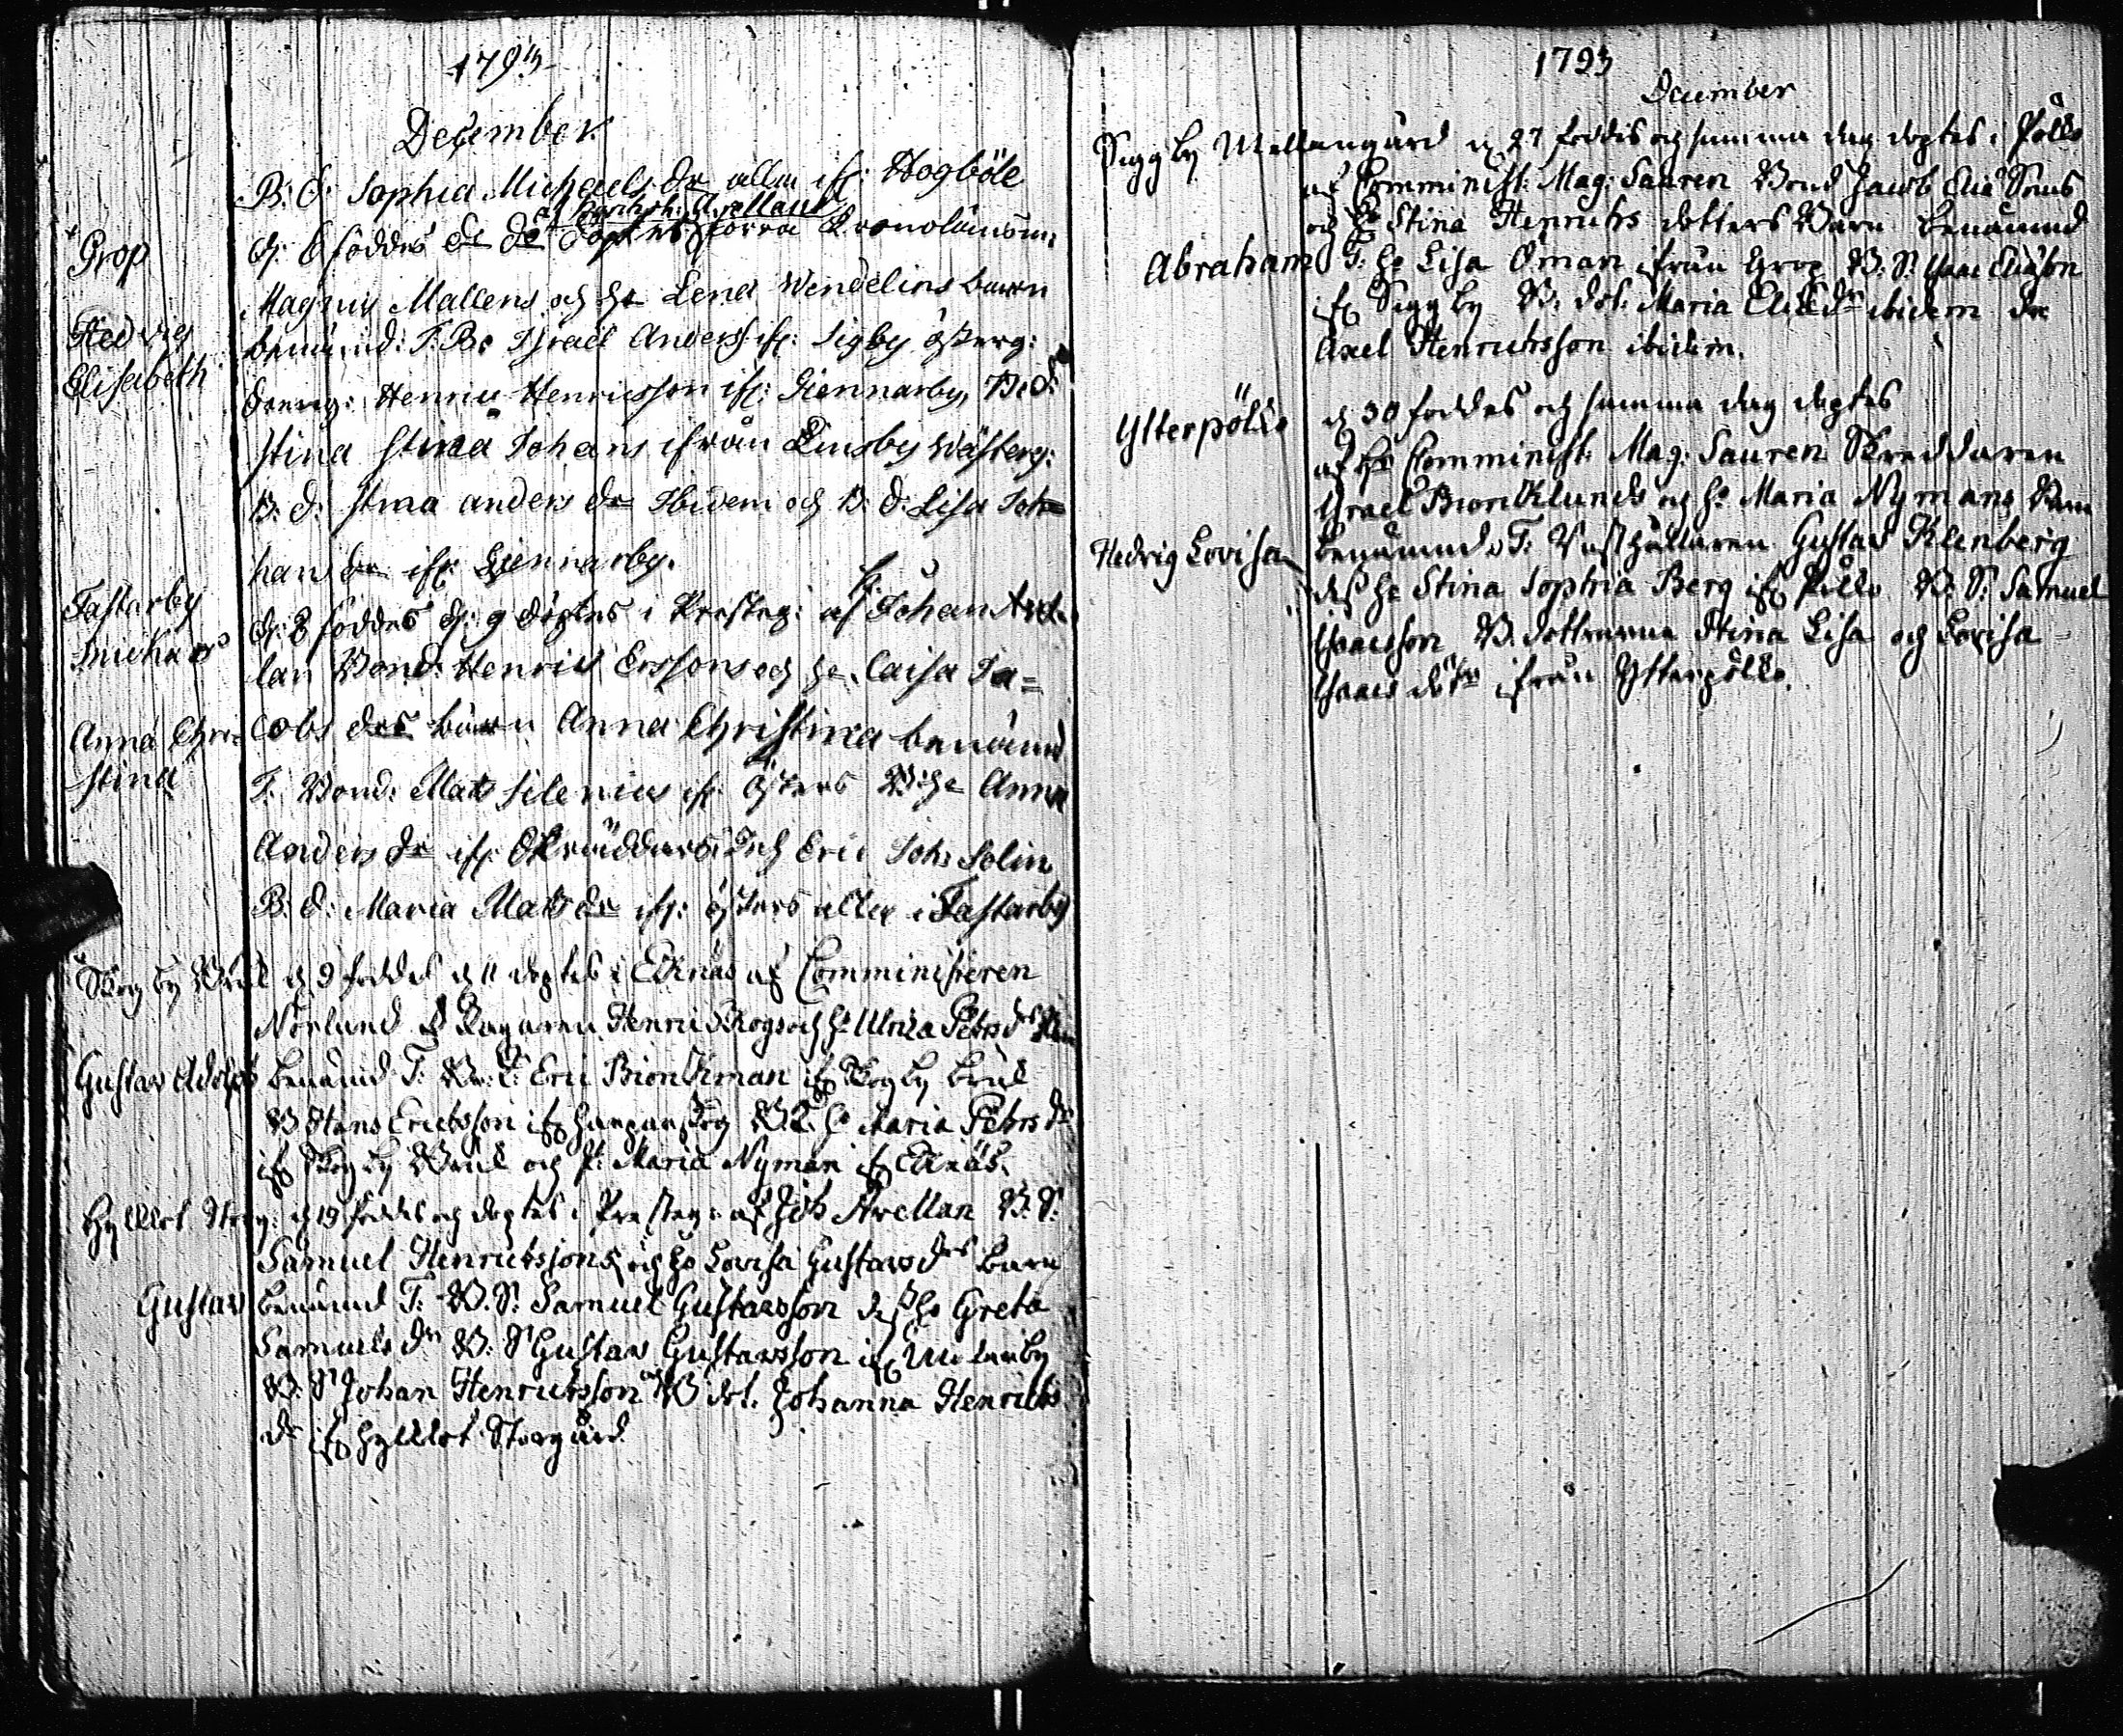 1793
December
B: d: Sophia Michaels dr alla ifr: Högböle
af Pacih: Arellan
Grop d: 6 föddes döptes förra Kronolänsm:
Magnus Mallens och h: Lena Wendelins barn
Hedvig Elisabeth benämnd: T: Bo Israel Anders ifr: Sigby österg:
dreng: Henric Henricsson ifr: Giennarby, B: d:
stina stina Johans ifrån Linsby Wästerg:
B: d: stina anders dr Ibidem och B: d: Lisa Joh=
hans dr ifr: Giennarby.
Fastarby d: 8 föddes d: 9 döptes i Presteg: af Johan Arel=
lan Bond: Henric Erssons och h: Caisa Ja=
Anna Chri= cobs drs barn Anna Christina benämnd
stina T: Bond: Mats Silenius ifr: östers B: h: Anna
Anders dr ifr: Skräddars Eric Joh: Solin
B: d: Maria Mats dr ifr: östers alla i Fastarby
Skogby Bruk d 9 föddes d 11 döptes i Ekenäs af Comministeren
Norlund Henric Skogs och h: Ulrica Petersdrs Barn
Gustav Adolph benämnd T: Eric Biörkman ifr Skogby bruk
B Hans Ericsson ifr B: h: Maria Pehrs dr
ifr Skogby Bruk och P: Maria Nyman ifr Ekenäs.
Storg: d 19 föddes och döptes i Presteg: af Joh Arellan B: S:
Samuel Henricssons och h: Lovisa Gustavs drs Barn
Gustav benämnd T: B. S: Samuel Gustavsson dess h: Greta
Samuels dr B: S: Gustav Gustavsson ifr
B: S: Johan Henricsson B dot. Johanna Henrics
dr ifr Storgård
1793
December
Siggby Mellangård d 27 föddes och samma dag döptes i Pöllö
af Comminist: Mag: Sauren Bond Jacob Elia Sons
och h: Stina Henrichs dotters Barn benämnd
Abraham T: h: Lisa Öman ifrån Grop B: S: Isaac Eliasson
ifr Siggby B: dot: Maria Elias dr ibidem dr
Axel Henricsson ibidem.
Ytterpöllö d 30 föddes och samma dag döptes
af Hr Comminist: Mag: Sauren Skreddaren
Israel Biörklunds och h: Maria Nymans Barn
Hedvig Lovisa benämnd T: Gustav Klenberg
dess h: Stina Sophia Berg ifr Pöllö B: S: Samuel
Isacsson B. döttrarna Stina Lisa och Lovisa
Isaacs dötr ifrån Ytterpöllö.